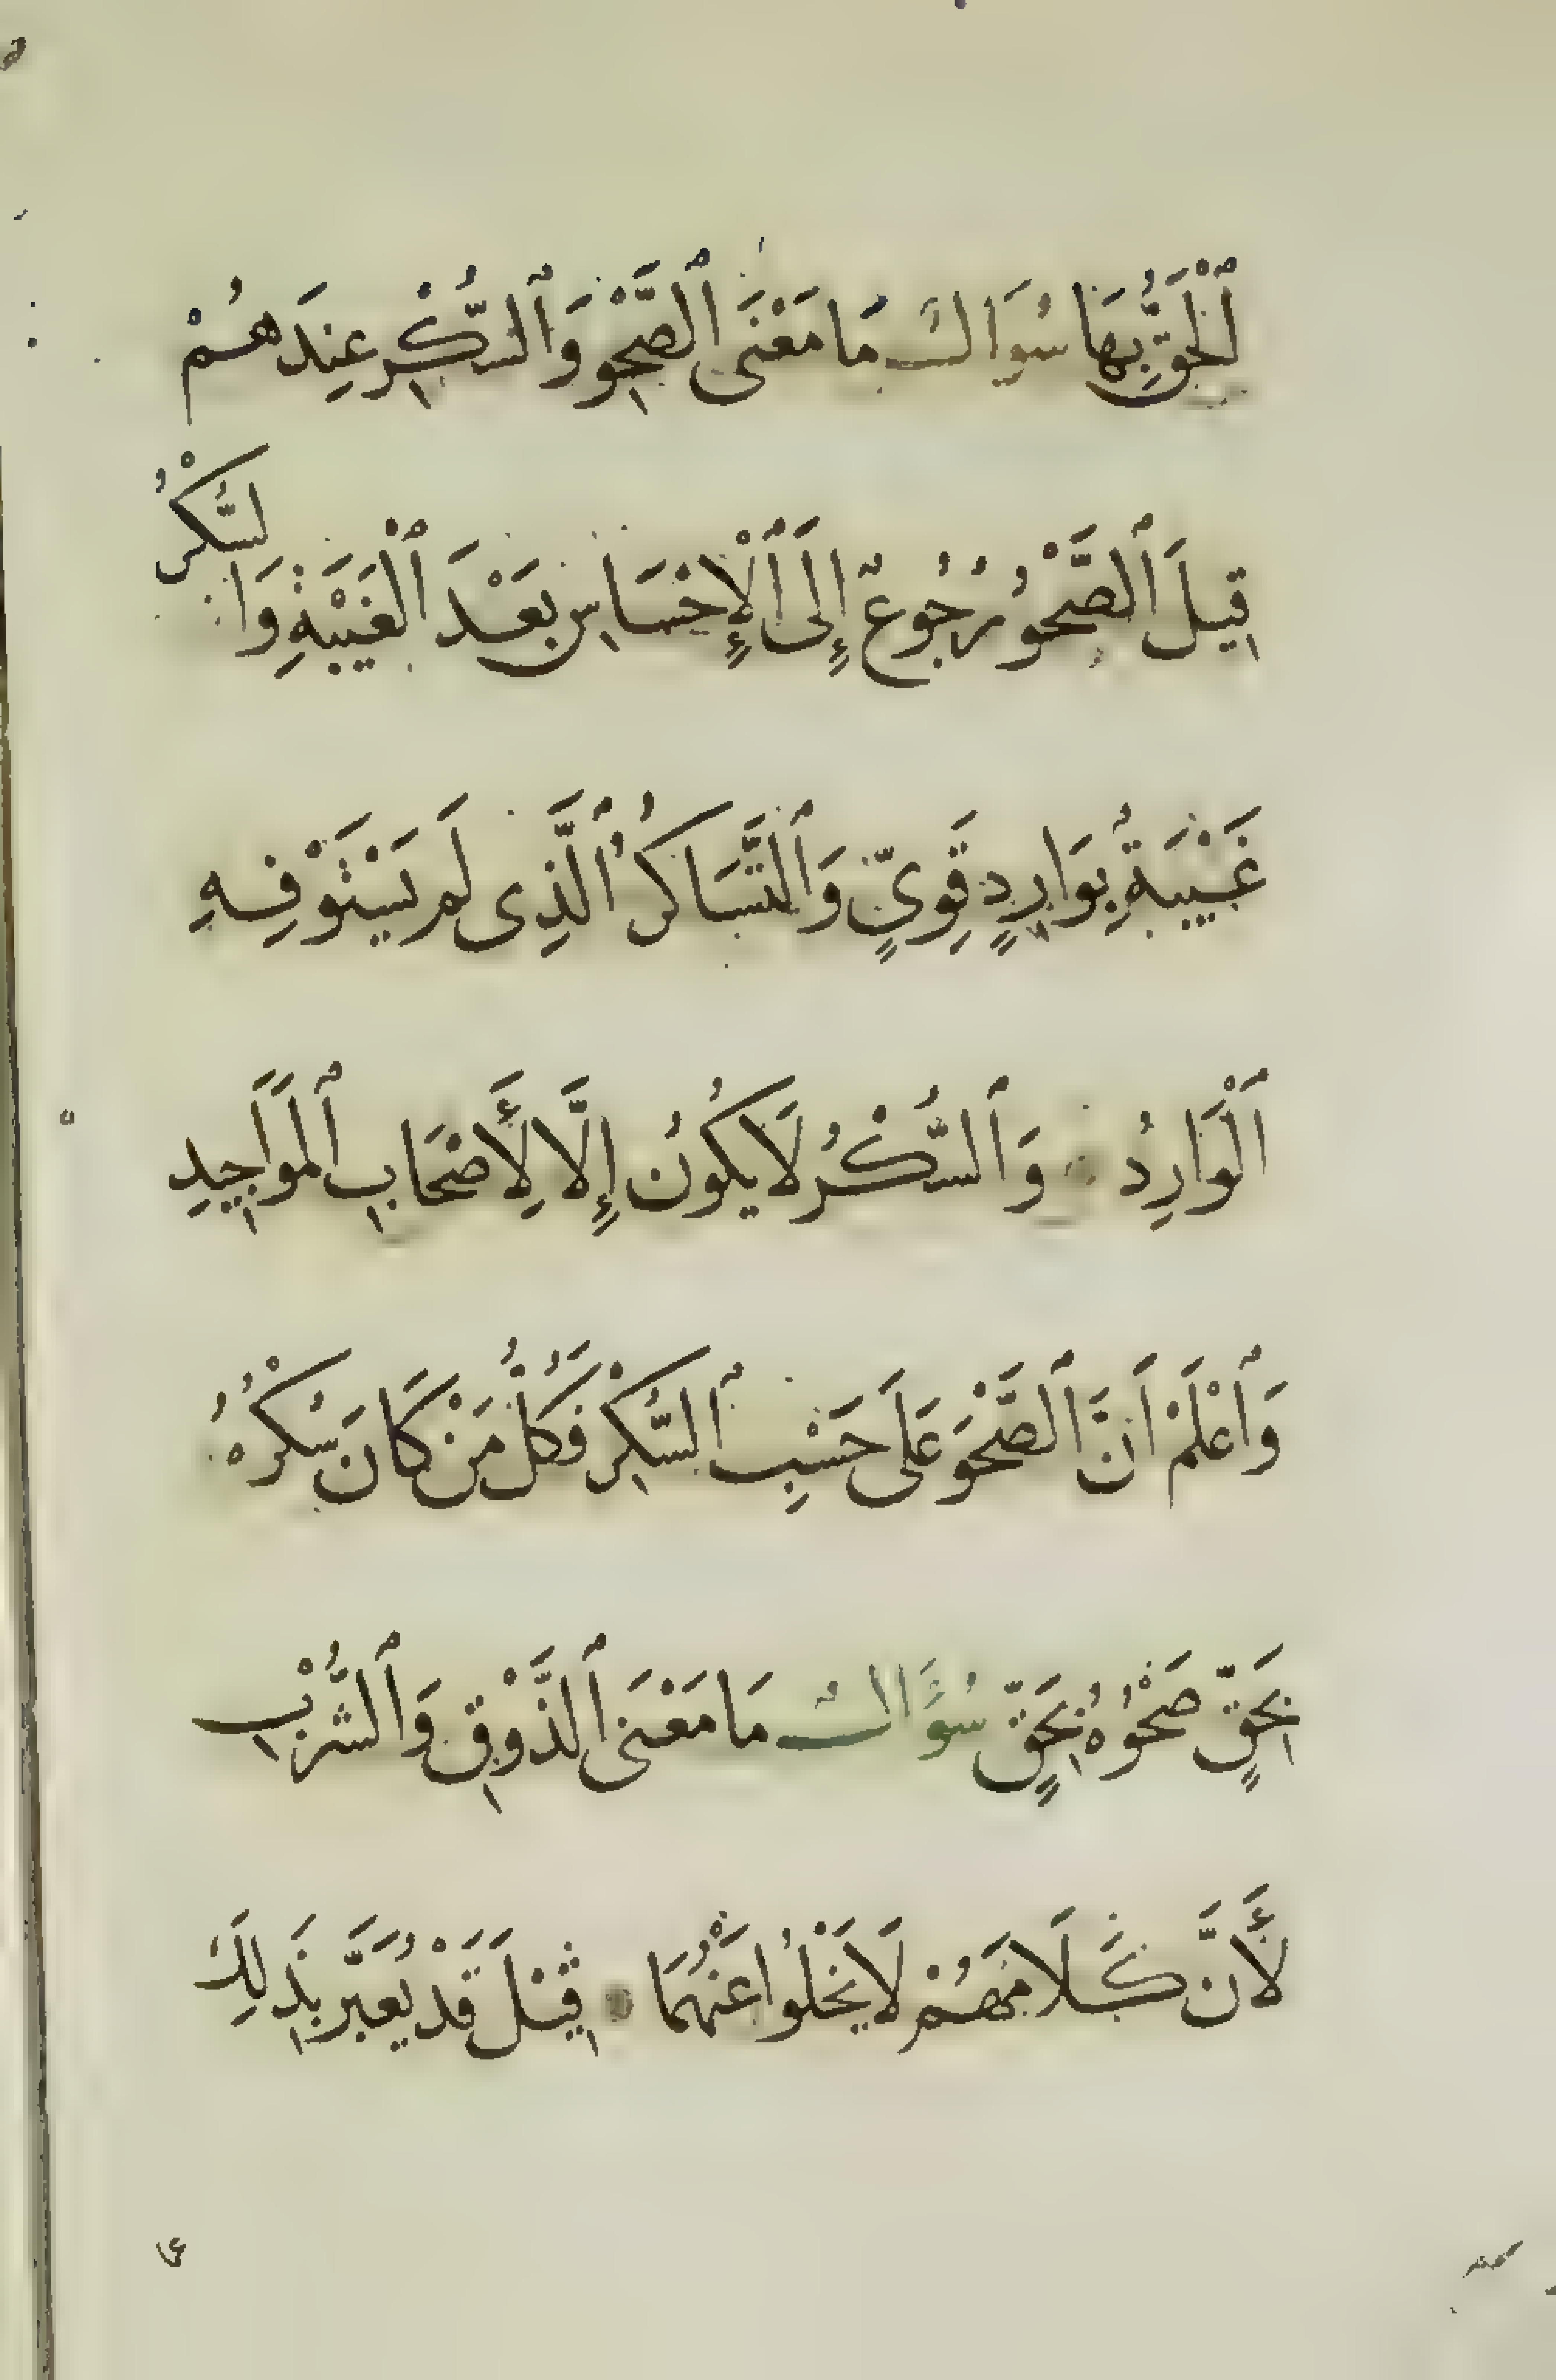 ٱلْحَقُّ بِهَا سُوَالٌ مَا مَعْنَى ٱلصَّحْوِ وَٱلسُّكْرِ عِندَهُمْ
قِيلَ ٱلصَّحْوُ رُجُوعٌ إِلَى ٱلْإِحْسَاسِ بَعْدَ ٱلْغَيْبَةِ وَالسُّكْرُ
غَيْبَةٌ بِوَارِدٍ قَوِيٍّ وَٱلْمُتَسَاكِرُ ٱلَّذِى لَمْ يَسْتَوْفِهِ
ٱلْوَارِدُ وَٱلسُّكْرُ لَا يَكُونُ إِلَّا لِأَصْحَابِ ٱلْمَوَاجِيدِ
وَٱعْلَمْ أَنَّ ٱلصَّحْوَ عَلَى حَسْبِ ٱلسُّكْرِ فَكُلُّ مَنْ كَانَ سُكْرُهُ
بِحَقٍّ صَحْوُهُ بِحَقٍّ سُؤَالٌ مَا مَعْنَى ٱلذَّوْقِ وَٱلشُّرْبِ
لِأَنَّ كَلَامَهُمْ لَا يَخْلُوا عَنْهُمَا قِيْلَ قَدْ يُعَبَّر بِذَلِكَ